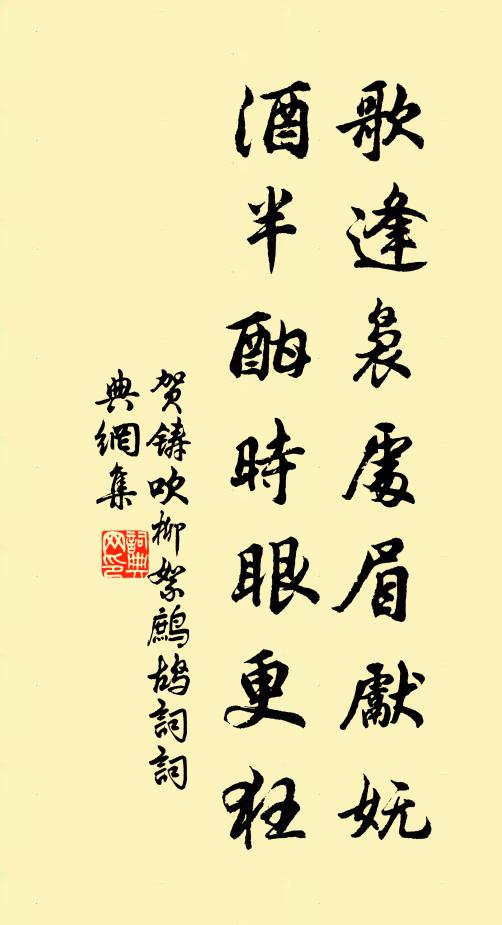 歌逢裊處眉獻妩
酒半酣時眼更狂
贺鑄吹柳絮鷓鴣詞詞
典網集
詞典
网印